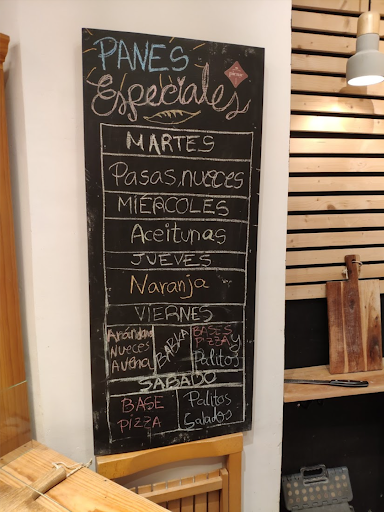 PANES
Especiales
MARTES
Pasas, nueces
MIÉRCOLES
Aceitunas
JUEVES
Naranja
VIERNES
Arándano
Nueces
Avena
BARRA
BASES
PIZZA Y
Palitos
SABADO
BASE
PIZZA
Palitos
Salados